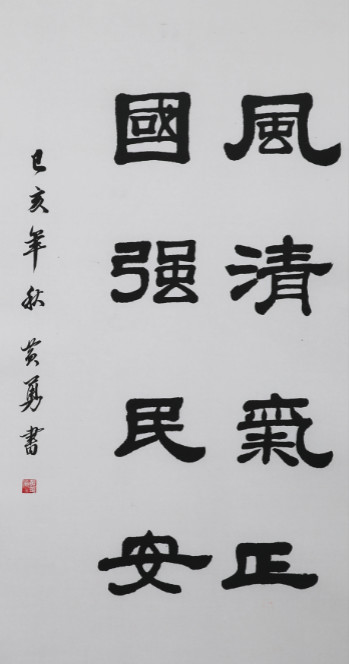 風清氣正
國强民安
己亥年秋 黄勇書